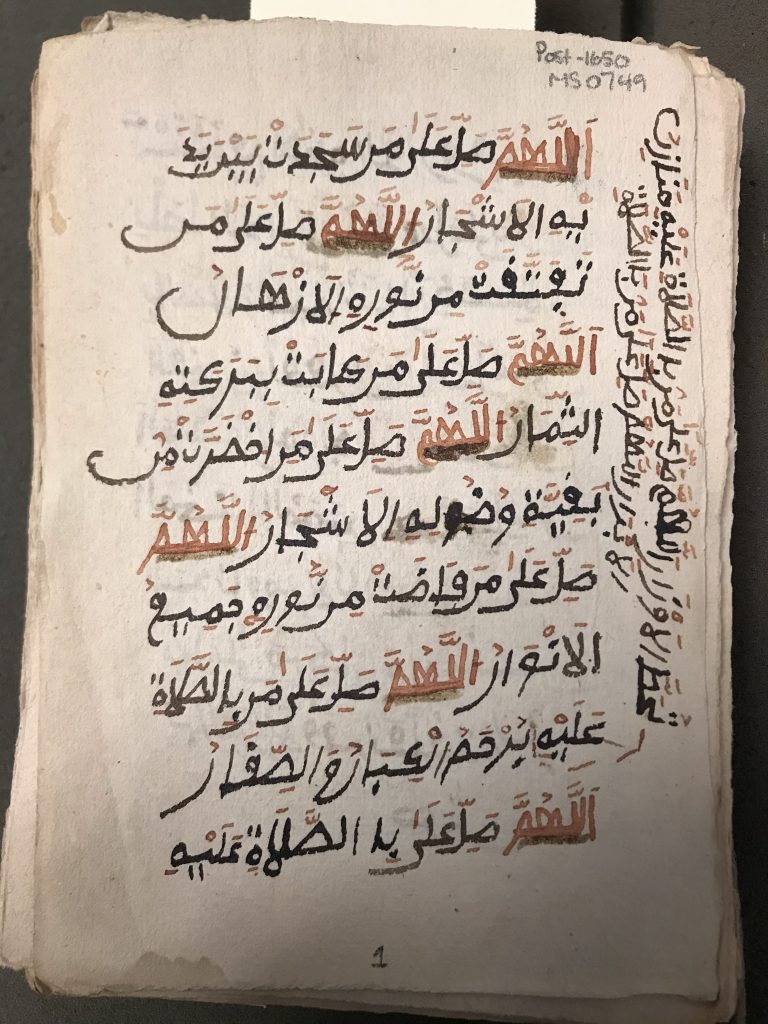 Post-1650
MS0749
اَللَّهُمَّ صَلِّ عَلَىٰ مَن سَجَدَتْ بَيْنَ يَدَ
يْهِ الاَشْجَارُ اللَّهُمَّ صَلِّ عَلَىٰ مَن
تَفَتَّقَتْ مِن نُّورِهِ الاَزْهَارُ
اَللَّهُمَّ صَلِّ عَلَىٰ مَن طَابَتْ بِبَرَكَتِهِ
الثِّمَارُ اللَّهُمَّ صَلِّ عَلَىٰ مَنِ اخْضَرَّتْ مِن
بَقِيَّةِ وَضُوئِهِ الاَشْجَارُ اللَّهُمَّ
صَلِّ عَلَىٰ مَن فَاضَتْ مِن نُّورِهِ جَمِيعُ
الاَنْوَارِ اللَّهُمَّ صَلِّ عَلَىٰ مَن بِالصَّلَاةِ
عَلَيْهِ يُرْحَمُ الْكِبَارُ وَالصِّغَارُ
اَللَّهُمَّ صَلِّ عَلَىٰ بِالصَّلَاةِ عَلَيْهِ
تُحَطُّ الاَوْزَارُ اللَّهُمَّ صَلِّ عَلَىٰ مَن بِالصَّلَاةِ عَلَيْهِ مَنَازِلَ
الاَبْرَارِ اللَّهُمَّ صَلِّ عَلَىٰ مَن بِالصَّلَاةِ
1